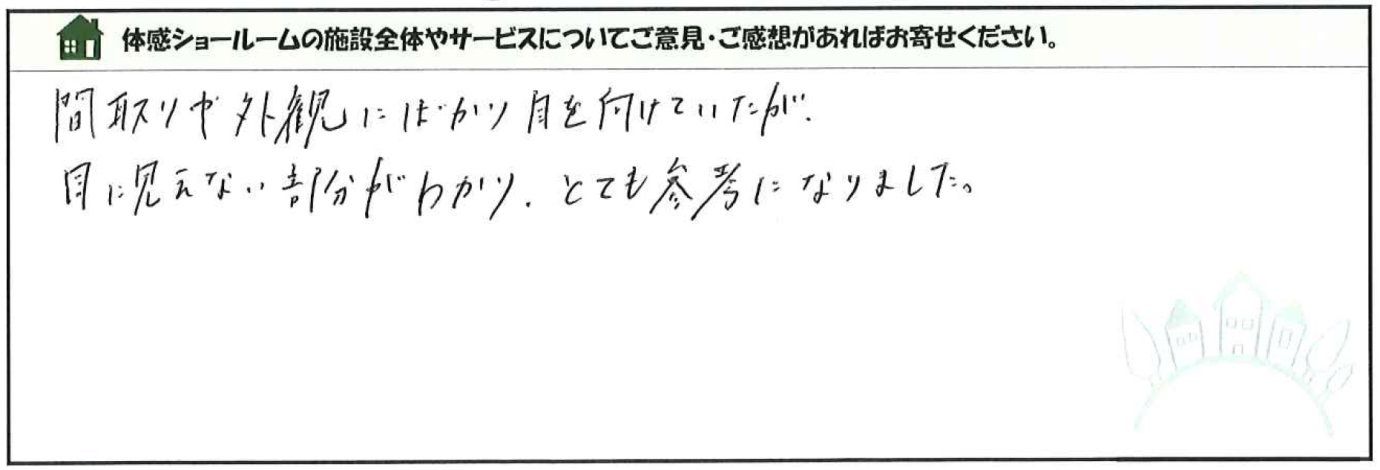 体感ショールームの施設全体やサービスについてご意見・ご感想があればお寄せください。
間取りや外観にばかり目を向けていたが、
目に見えない部分がわかり、とても参考になりました。